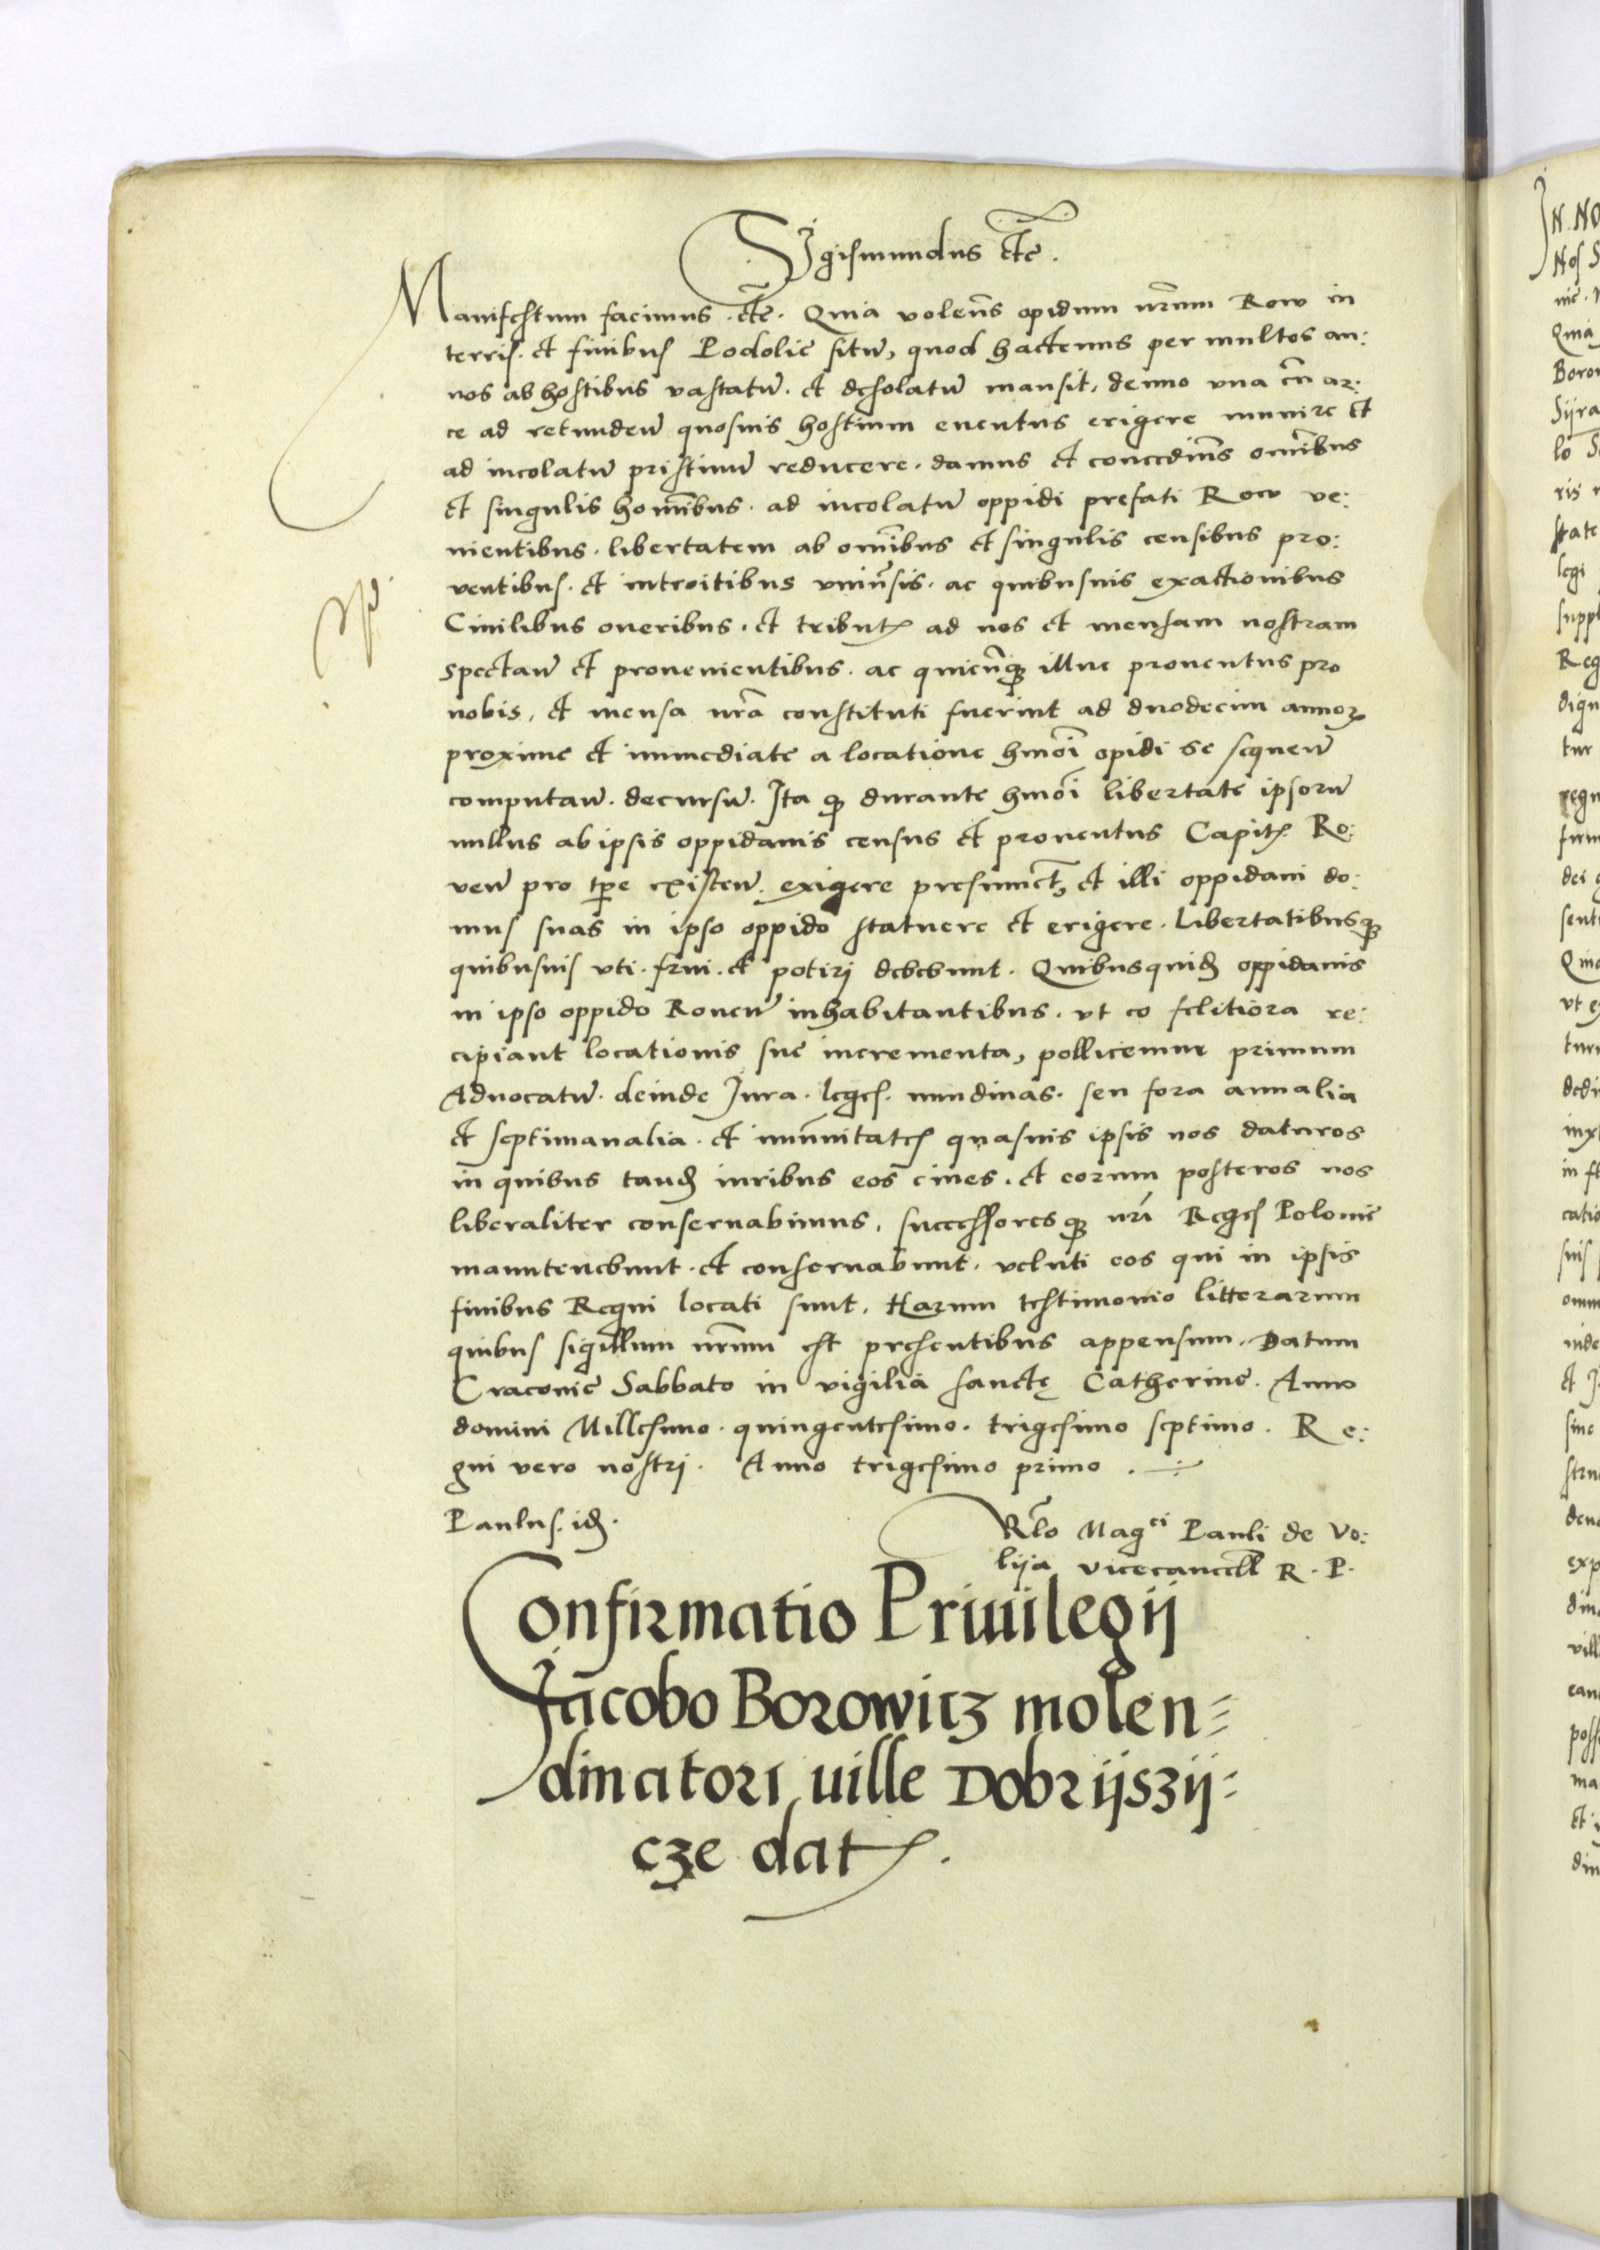 Sigismundus etc̃.
Manifestum facimus .etc̃. Quia volens̃ opidum nr̃um Row in
terris. et finibus Podolie situ̅, quod hactenus per multos an:
nos ab hostibus vastatu̅. et desolatu̅ mansit, denuo vna cu̅ ar:
ce ad retunden̅ quosuis hostium euentus erigere munire et
ad incolatu̅ pristinu̅ reducere. damus et concedim̃s om̃ibus
et singulis homi̅bus. ad incolatu̅ oppidi prefati Row ve:
nientibus. libertatem ab om̃ibus et singulis censibus pro:
ventibus. et introitibus vniu̅rsis. ac quibusuis exactionibus
Ciuilibus oneribus. et tributꝭ ad nos et mensam nostram
spectan̅ et prouenientibus. ac quicu̅qꝫ illuc prouentus pro
nobis, et mensa nr̃a constituti fuerint ad duodecim annoꝝ
proxime et immediate a locatione hmõi opidi se sequen̅
computan̅. decursu̅. Ita qꝫ durante hmõi libertate ipsoru̅
nullus ab ipsis oppidanis census et prouentus Capitꝭ Ro:
uen̅ pro tp̃e existen̅. exigere presumet, et illi oppidani do:
mus suas in ipso oppido statuere et erigere. Libertatibusqꝫ
quibusuis vti. frui. et potirj debebunt. Quibusquid̃ oppidanis
in ipso oppido Rouen̅ inhabitantibus. vt eo felitiora re:
cipiant locationis sue incrementa, pollicemur primum
Aduocatu̅. deinde Jura. leges. nundinas. seu fora annalia
et septimanalia. et immu̅itates quasuis ipsis nos daturos
in quibus tand̃ iuribus eos̃ ciues. et eorum posteros nos
liberaliter conseruabimus, successoresqꝫ nr̃i Reges Polonie
manutenebunt. et conseruabunt. veluti eos qui in ipsis
finibus Regni locati sunt. Harum testimonio litterarum
quibus sigillum nr̃um est presentibus appensum. Datum
Cracouie Sabbato in vigilia sanctę Catherine. Anno
domini Millesimo. quingentesimo. trigesimo septimo. Re:
gni vero nostrj. Anno trigesimo primo .÷
Paulus. id̃.
Rl̃o Magci Pauli de Vo:
lija vicecancell̃ R. P.
Confirmatio Priuilegij
Jacobo Borowicz molen=
dinatori ville Dobrijszij=
cze datꝭ.